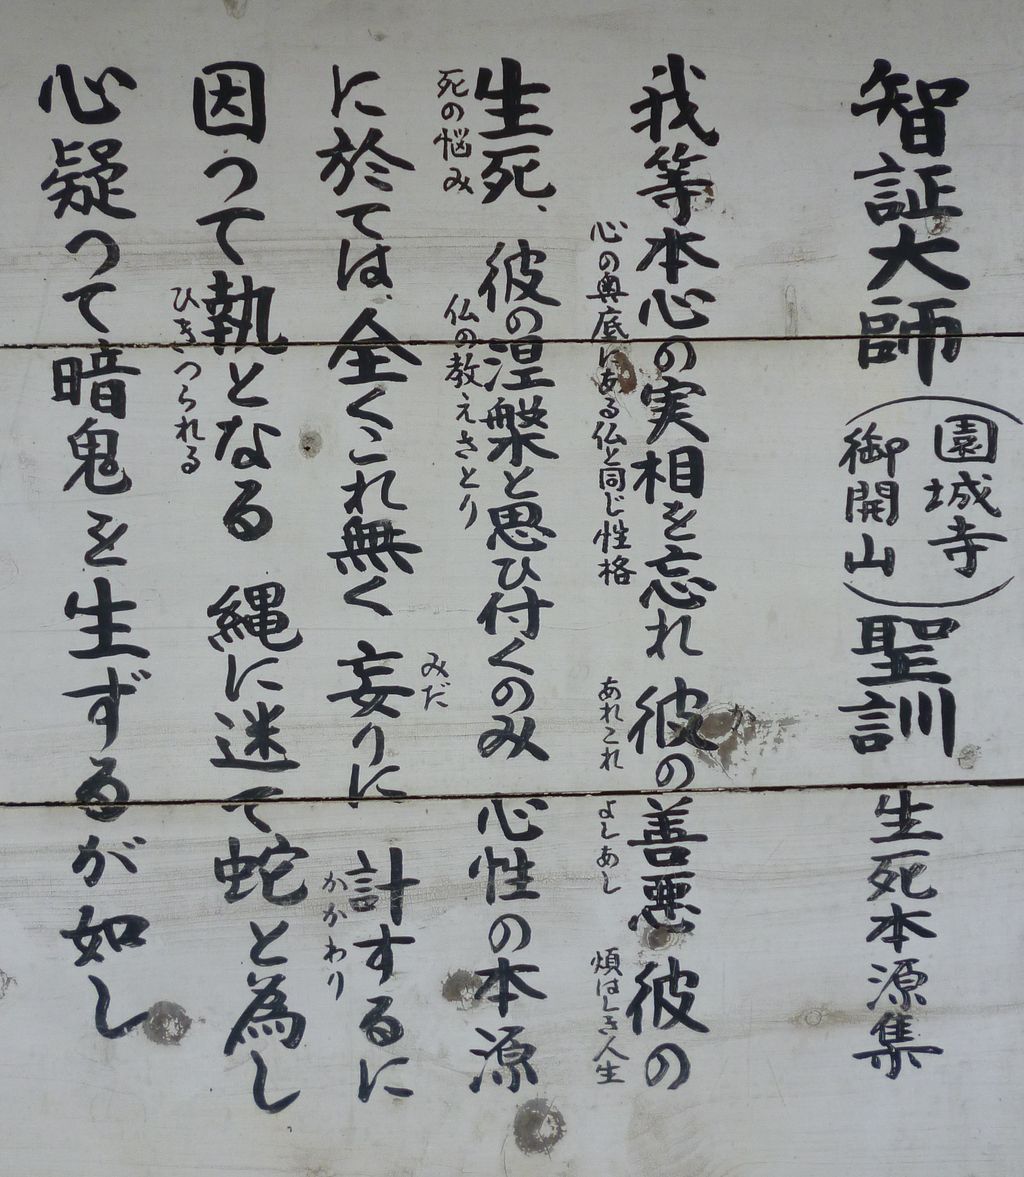 智証大師（園城寺御開山）聖訓 生死本源集
我等本心の実相を忘れ 彼の善悪 彼の
か
心の奥底にある仏と同じ性格 あれこれ よしあし 煩はしき人生
生死、彼の涅槃と思ひ付くのみ 心性の本源
死の悩み 仏の教えさとり
に於ては、全くこれ無く 妄りに 計するに
みだ
かかわり
因つて執となる 縄に迷て蛇と為し
ひきつられる
心疑つて暗鬼を生ずるが如し